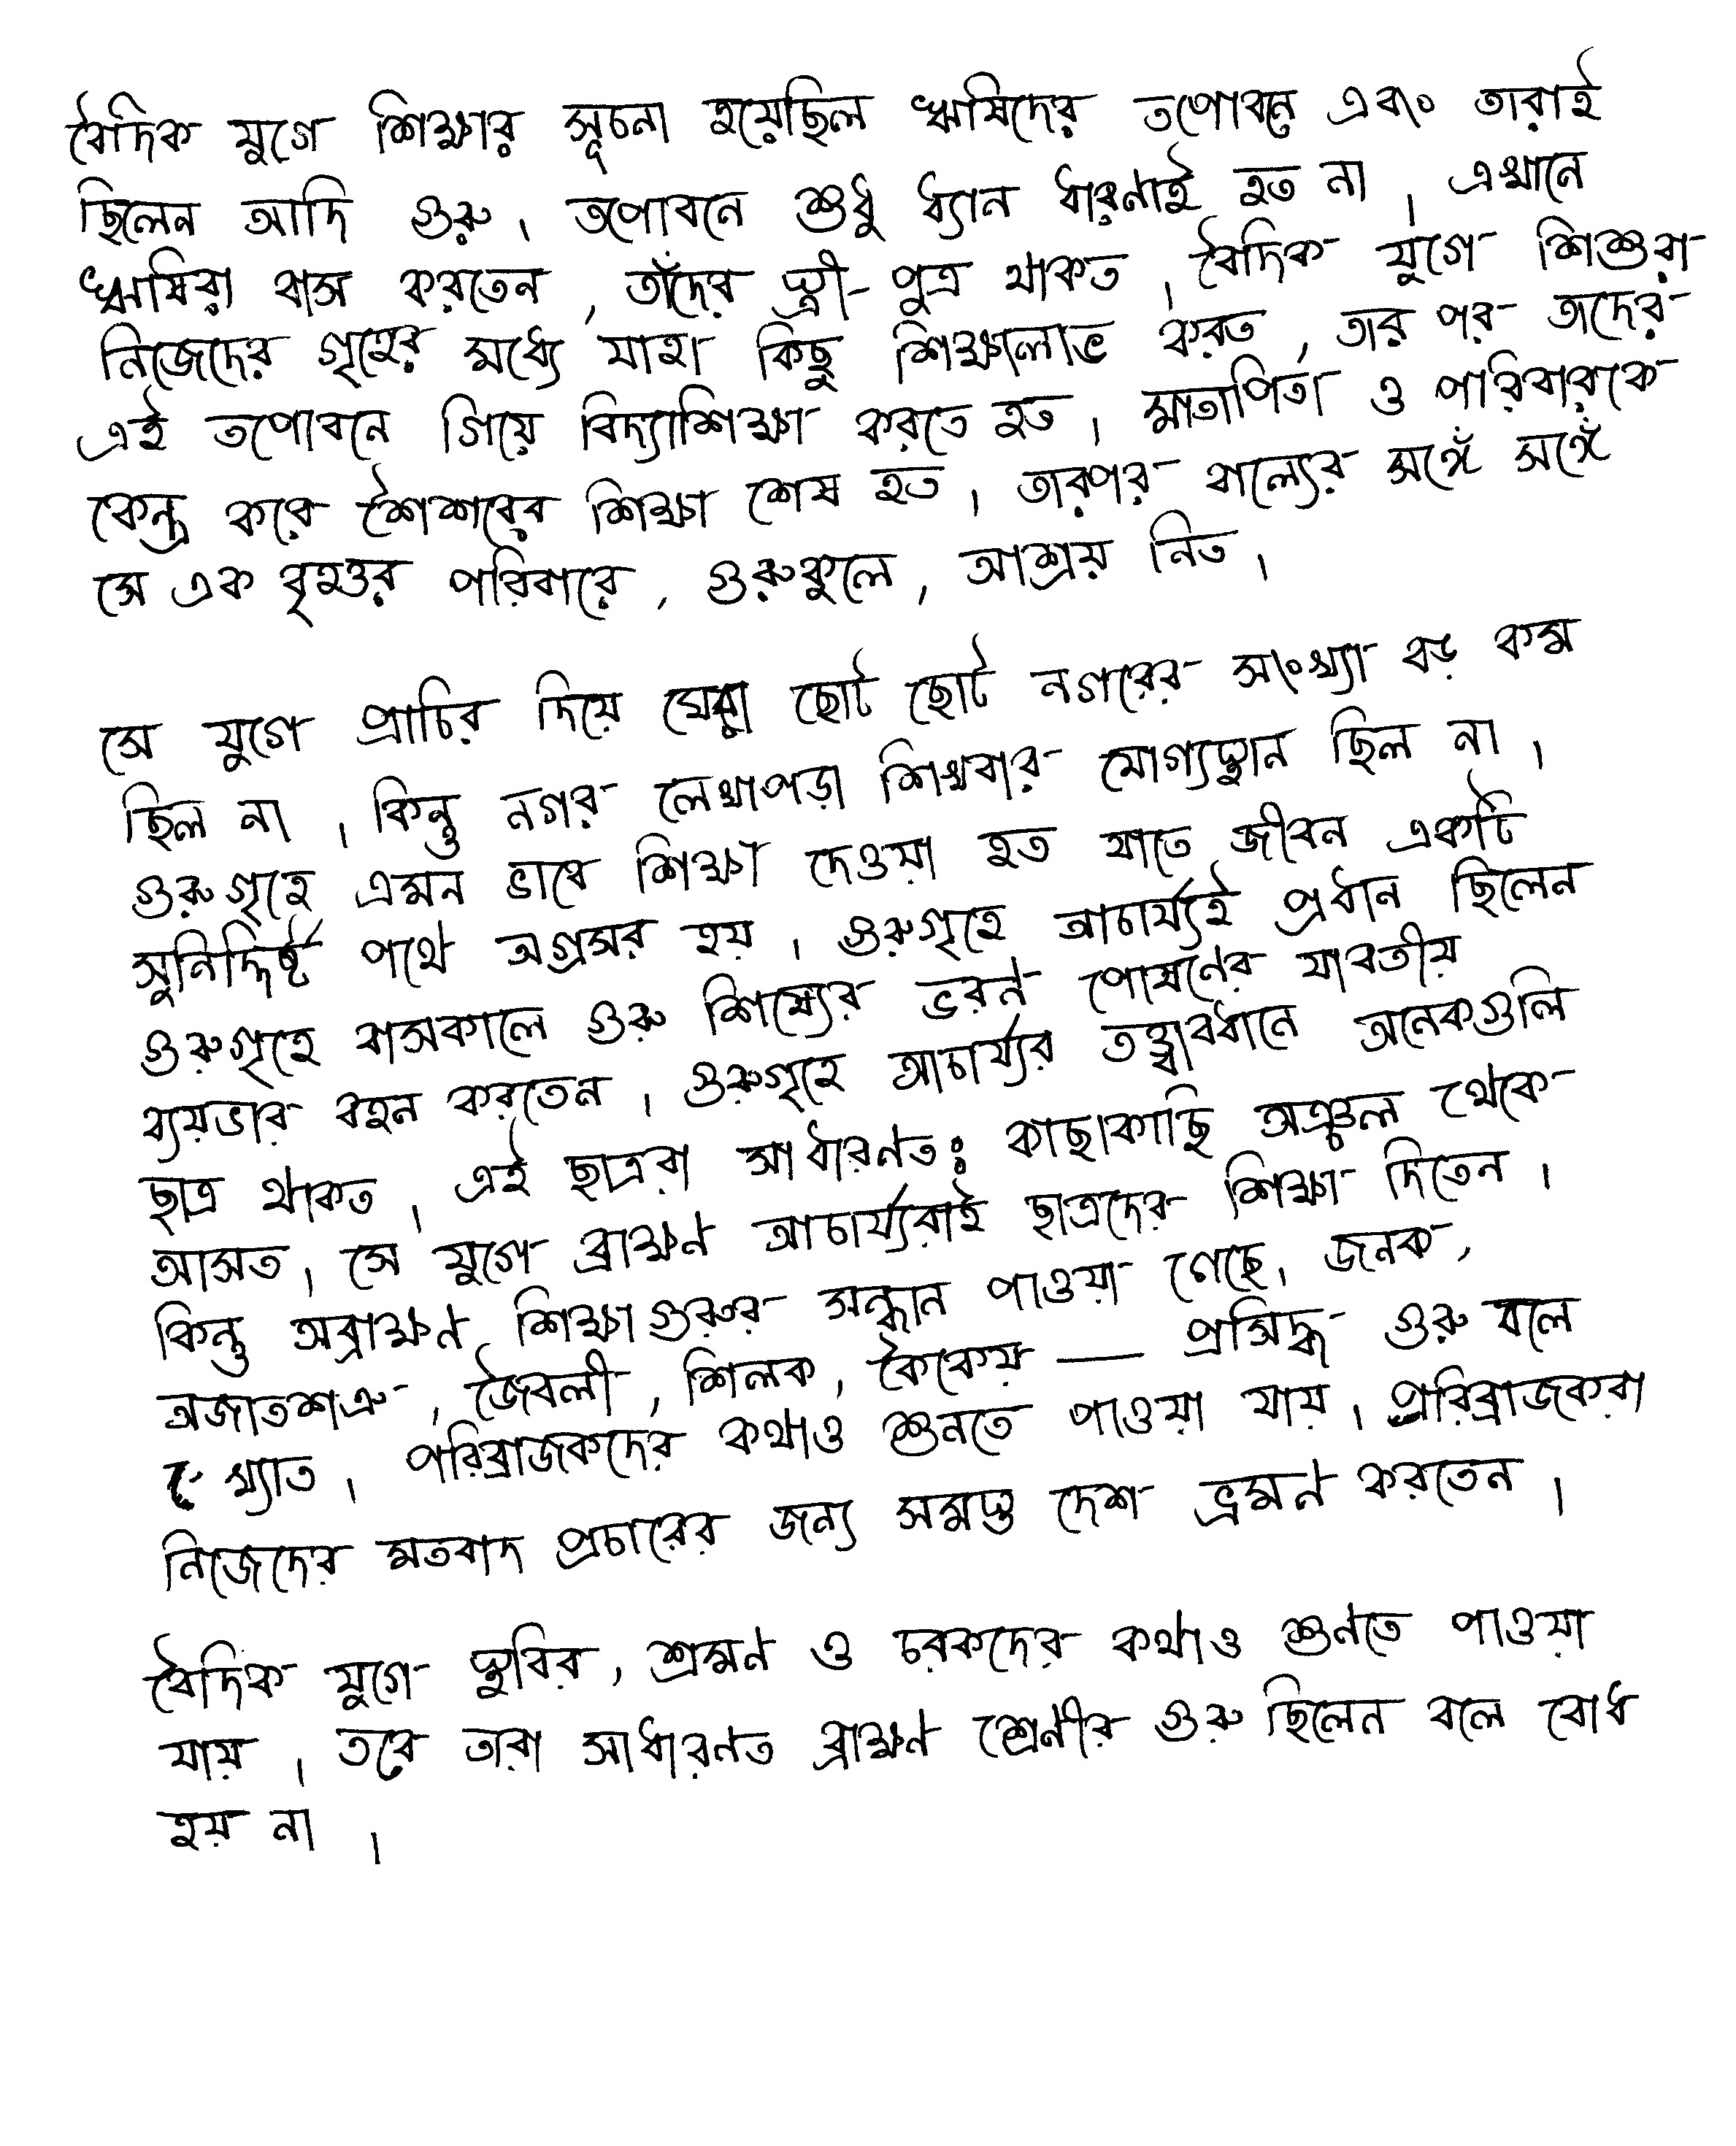 বৈদিক যুগে শিক্ষার সূচনা হয়েছিল ঋষিদের তপোবনে এবং তারাই
ছিলেন আদি গুরু। তপোবনে শুধু ধ্যান ধারণাই হত না। এখানে
ঋষিরা বাস করতেন, তাঁদের স্ত্রী-পুত্র থাকত। বৈদিক যুগে শিশুরা
নিজেদের গৃহের মধ্যে যাহা কিছু শিক্ষালাভ করত, তার পর তাদের
এই তপোবনে গিয়ে বিদ্যাশিক্ষা করতে হত। মাতাপিতা ও পরিবারকে
কেন্দ্র করে শৈশবের শিক্ষা শেষ হত। তারপর বাল্যের সঙ্গেঁ সঙ্গেঁ
সে এক বৃহত্তর পরিবারে, গুরুকুলে, আশ্রয় নিত।
সে যুগে প্রাচির দিয়ে ঘেরা ছোট ছোট নগরের সংখ্যা বড় কম
ছিল না। কিন্তু নগর লেখাপড়া শিখবার যোগ্যস্থান ছিল না।
গুরুগৃহে এমন ভাবে শিক্ষা দেওয়া হত যাতে জীবন একটি
সুনির্দ্দিষ্ট পথে অগ্রসর হয়। গুরুগৃহে আচার্য্যই প্রধান ছিলেন
গুরুগৃহে বাসকালে গুরু শিষ্যের ভরণ পোষণের যাবতীয়
ব্যয়ভার বহন করতেন। গুরুগৃহে আচার্য্যর তত্ত্বাবধানে অনেকগুলি
ছাত্র থাকত। এই ছাত্ররা সাধারণতঃ কাছাকাছি অঞ্চল থেকে
আসত। সে যুগে ব্রাহ্মণ আচার্য্যরাই ছাত্রদের শিক্ষা দিতেন।
কিন্তু অব্রাহ্মণ শিক্ষাগুরুর সন্ধান পাওয়া গেছে। জনক,
অজাতশত্রু, জৈবলী, শিলক, কৈকেয় — প্রসিদ্ধ গুরু বলে
খ্যাত। পরিব্রাজকদের কথাও শুনতে পাওয়া যায়। পরিব্রাজকরা
নিজেদের মতবাদ প্রচারের জন্য সমস্ত দেশ ভ্রমণ করতেন।
বৈদিক যুগে স্থবির, শ্রমণ ও চরকদের কথাও শুনতে পাওয়া
যায়। তবে তারা সাধারণত ব্রাহ্মণ শ্রেণীর গুরু ছিলেন বলে বোধ
হয় না।